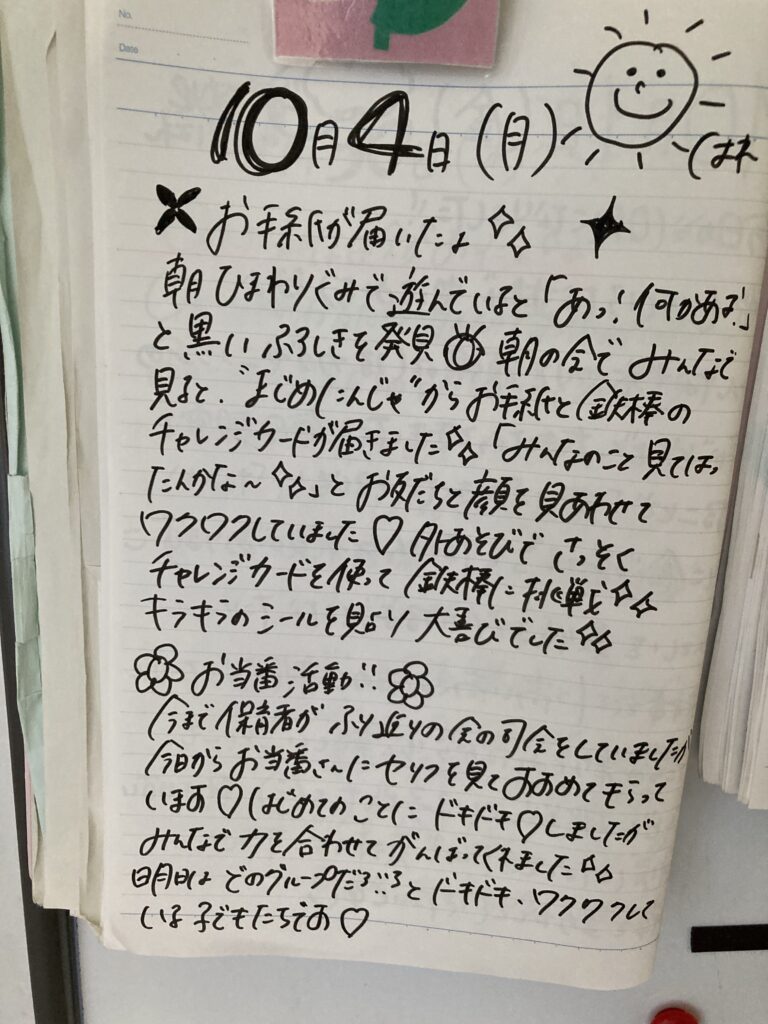 No.
Date
10月4日(月)
お手紙が届いたよ
朝ひまわりぐみで遊んでいると「あっ!何かある!」
と黒いふろしきを発見 朝の会でみんなで
見ると、"まじめにんじゃ"からお手紙と鉄棒の
チャレンジカードが届きました「みんなのこと見てはっ
たんかな〜」とお友だちと顔を見あわせて
ワクワクしていました♡外あそびでさっそく
チャレンジカードを使って鉄棒に挑戦
キラキラのシールを貼り大喜びでした
お当番活動!!
今まで保育者がふり返りの会の司会をしていましたが
今日からお当番さんにセリフを見てすすめてもらって
います♡はじめてのことにドキドキ♡しましたが
みんなで力を合わせてがんばってくれました
明日はどのグループだろ!?とドキドキ、ワクワクして
いる子どもたちです♡